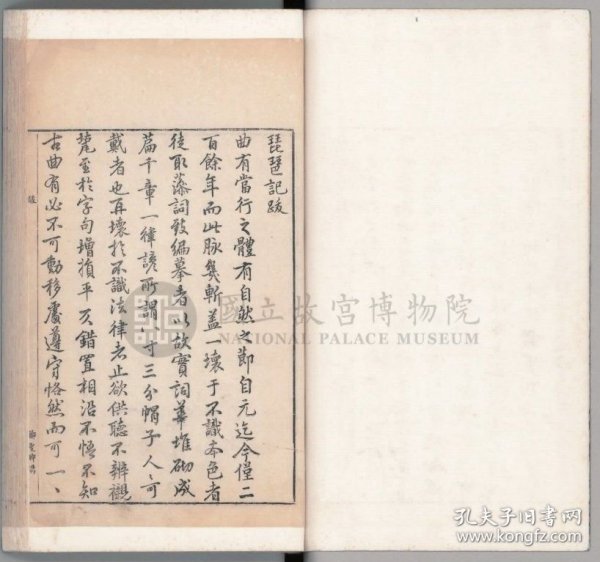 琵琶記跋
曲有當行之體有自然之節自元迄今僅二
百餘年而此脉幾斬盖一壞于不識本色者
徒取藻詞致編摹者以故實詞華堆砌成
篇千章一律諺所謂寸三分帽子人人可
戴者也再壞於不識法律者止欲供聽不辨觀
至於字句增損平仄錯置相沿不悟不知
古曲有必不可動移處遵守恪然而可一、
跋
國立故宮博物院
NATIONAL PALACE MUSEUM
孔夫子旧书网
www.kongfz.com